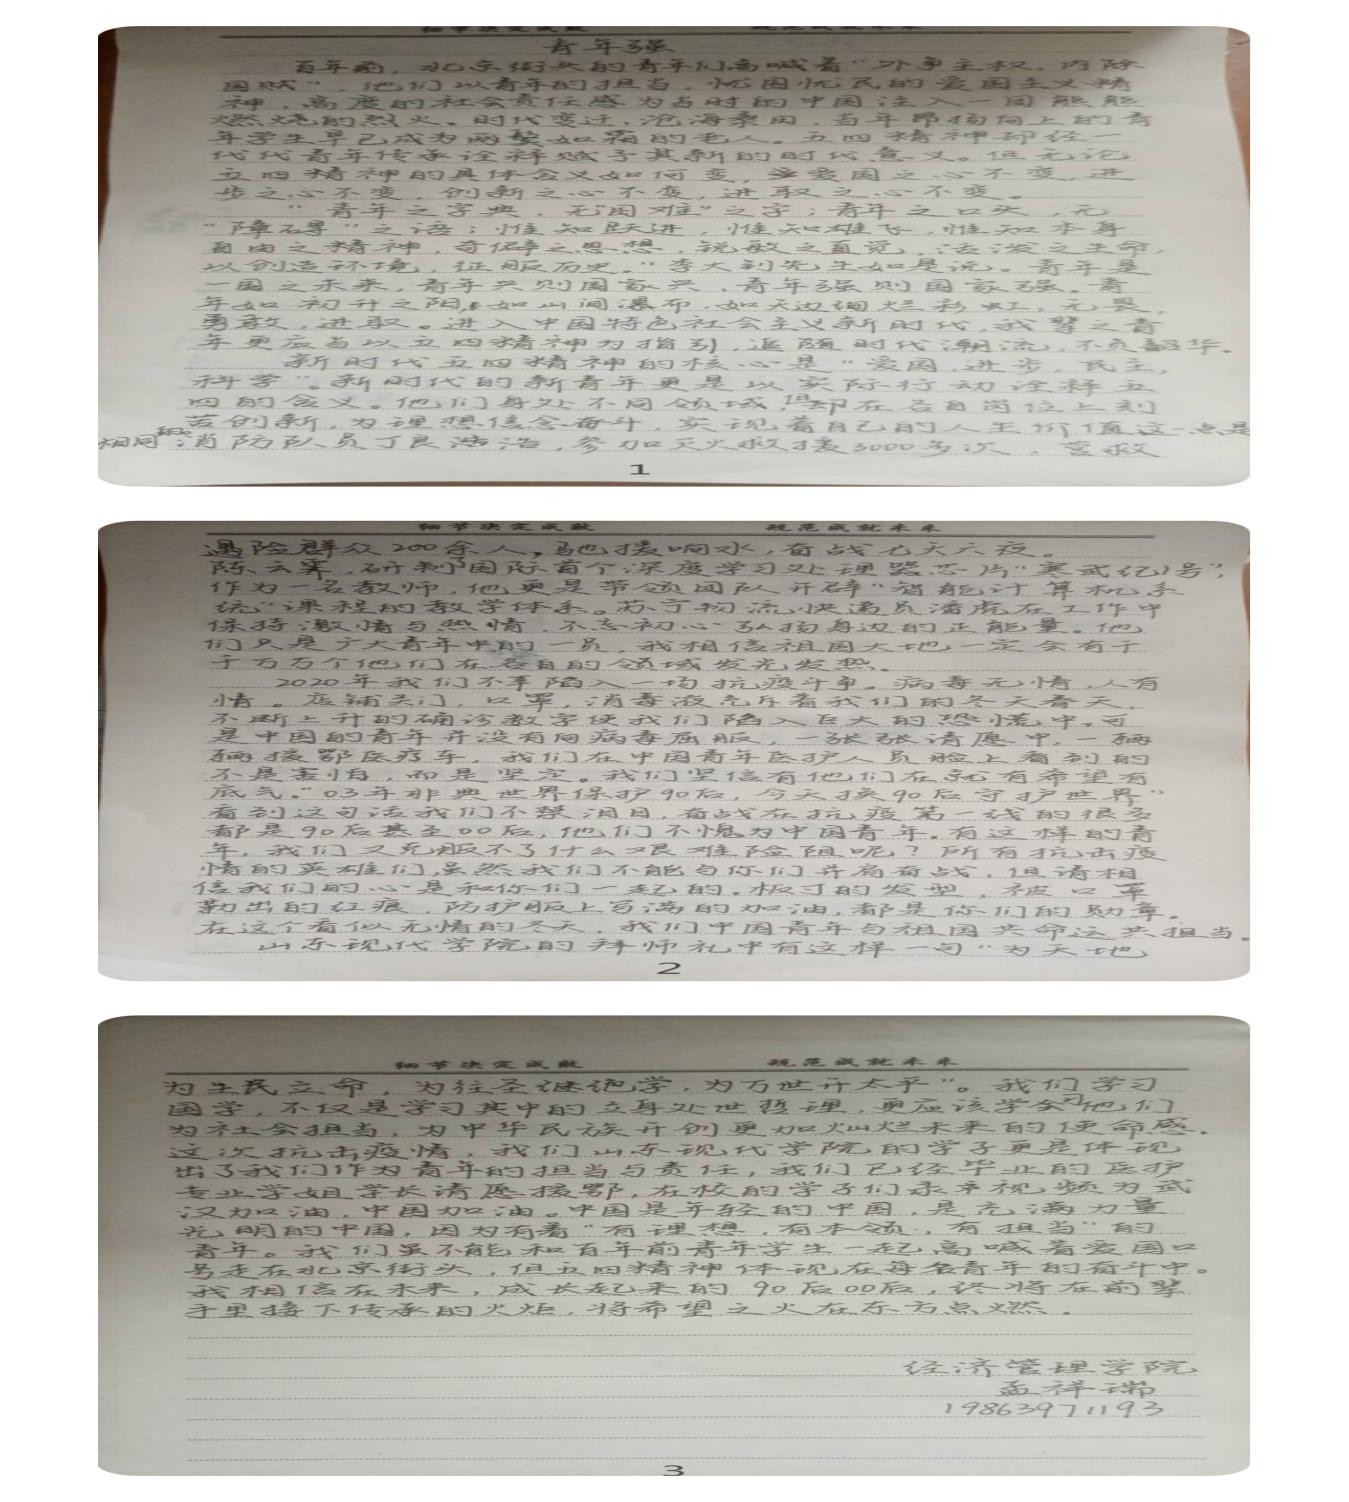 细节决定成败 规范成就未来
青年强
百年前，北京街头的青年们高喊着“外争主权，内除
国贼”，他们以青年的担当，忧国忧民的爱国主义精
神，高度的社会责任感为当时的中国注入一团熊熊
燃烧的烈火。时代变迁，沧海桑田，当年昂扬向上的青
年学生早已成为两鬓如霜的老人。五四精神却经一
代代青年传承诠释赋予其新的时代意义。但无论
五四精神的具体含义如何变，爱国之心不变，进
步之心不变，创新之心不变，进取之心不变。
“青年之字典，无“困难”之字；青年之口头，无
“障碍”之语；惟知跃进，惟知雄飞，惟知本身
自由之精神，奇僻之思想，锐敏之直觉，活泼之生命，
以创造环境，征服历史。”李大钊先生如是说。青年是
一国之未来，青年兴则国家兴，青年强则国家强。青
年如初升之阳，如山间瀑布，如天边绚烂彩虹，无畏，
勇敢，进取。进入中国特色社会主义新时代，我辈之青
年更应当以五四精神为指引，追随时代潮流，不负韶华。
新时代五四精神的核心是“爱国，进步，民主，
科学”。新时代的新青年更是以实际行动诠释五
四的含义。他们身处不同领域，但却在各自岗位上刻
苦创新，为理想信念奋斗，实现着自己的人生价值这一点是
相同的。消防队员丁良浩，参加灭火救援3000多次，营救
1
细节决定成败 规范成就未来
遇险群众200余人，驰援响水，奋战七天六夜。
陈云霁，研制了国际首个深度学习处理器芯片“寒武纪1号”，
作为一名教师，他更是带领团队开辟“智能计算机系
统”课程的教学体系。苏宁物流快递员潘虎在工作中
保持激情与热情，不忘初心弘扬身边的正能量。他
们只是广大青年中的一员，我相信祖国大地一定会有千
千万万个他们在各自的领域发光发热。
2020年我们不幸陷入一场抗疫斗争。病毒无情，人有
情。店铺关门，口罩，消毒液充斥着我们的冬天春天，
不断上升的确诊数字使我们陷入巨大的恐慌中。可
是中国的青年并没有向病毒屈服，一张张请愿中，一辆
辆援鄂医疗车，我们在中国青年医护人员脸上看到的
不是害怕，而是坚定。我们坚信有他们在就有希望有
底气。“03年非典世界保护90后，今天换90后守护世界”
看到这句话我们不禁泪目，奋战在抗疫第一线的很多
都是90后甚至00后，他们不愧为中国青年。有这样的青
年，我们又克服不了什么艰难险阻呢？所有抗击疫
情的英雄们，虽然我们不能与你们并肩奋战，但请相
信我们的心是和你们一起的。板寸的发型，被口罩
勒出的红痕，防护服上写满的加油，都是你们的勋章。
在这个看似无情的冬天，我们中国青年与祖国共命运共担当。
山东现代学院的拜师礼中有这样一句“为天地
2
细节决定成败 规范成就未来
为生民立命，为往圣继绝学，为万世开太平”。我们学习
国学，不仅是学习其中的立身处世哲理，更应该学会习他们
为社会担当，为中华民族开创更加灿烂未来的使命感。
这次抗击疫情，我们山东现代学院的学子更是体现
出了我们作为青年的担当与责任，我们已经毕业的医护
专业学姐学长请愿援鄂，在校的学子们录来视频为武
汉加油，中国加油。中国是年轻的中国，是充满力量
光明的中国，因为有着“有理想，有本领，有担当”的
青年。我们虽不能和百年前青年学生一起高喊着爱国口
号走在北京街头，但五四精神体现在每名青年的奋斗中。
我相信在未来，成长起来的90后00后，终将在前辈
手里接下传承的火炬，将希望之火在东方点燃。
经济管理学院
孟祥瑞
19863971193
3